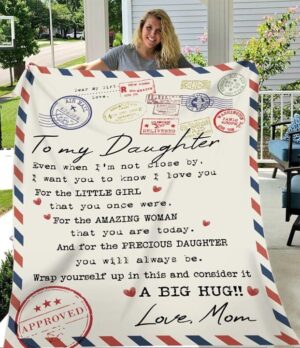 Dear My Girl,
Love,
To my Daughter
Even when I'm not close by,
I want you to know I love you
For the LITTLE GIRL
that you once were.
For the AMAZING WOMAN
that you are today.
And for the PRECIOUS DAUGHTER
you will always be.
Wrap yourself up in this and consider it
A BIG HUG!!
Love, Mom
APPROVED
DELIVERED